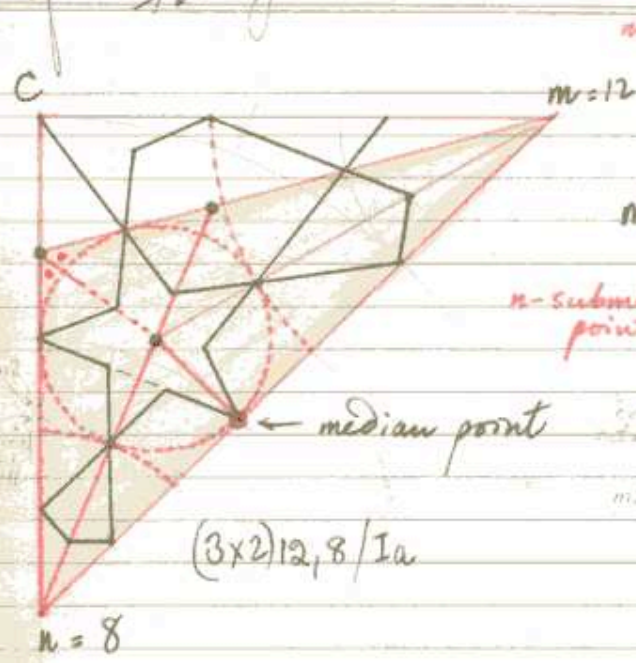 C
m = 12
n-subm
poin
← median point
(3x2)12,8/Ia
n = 8